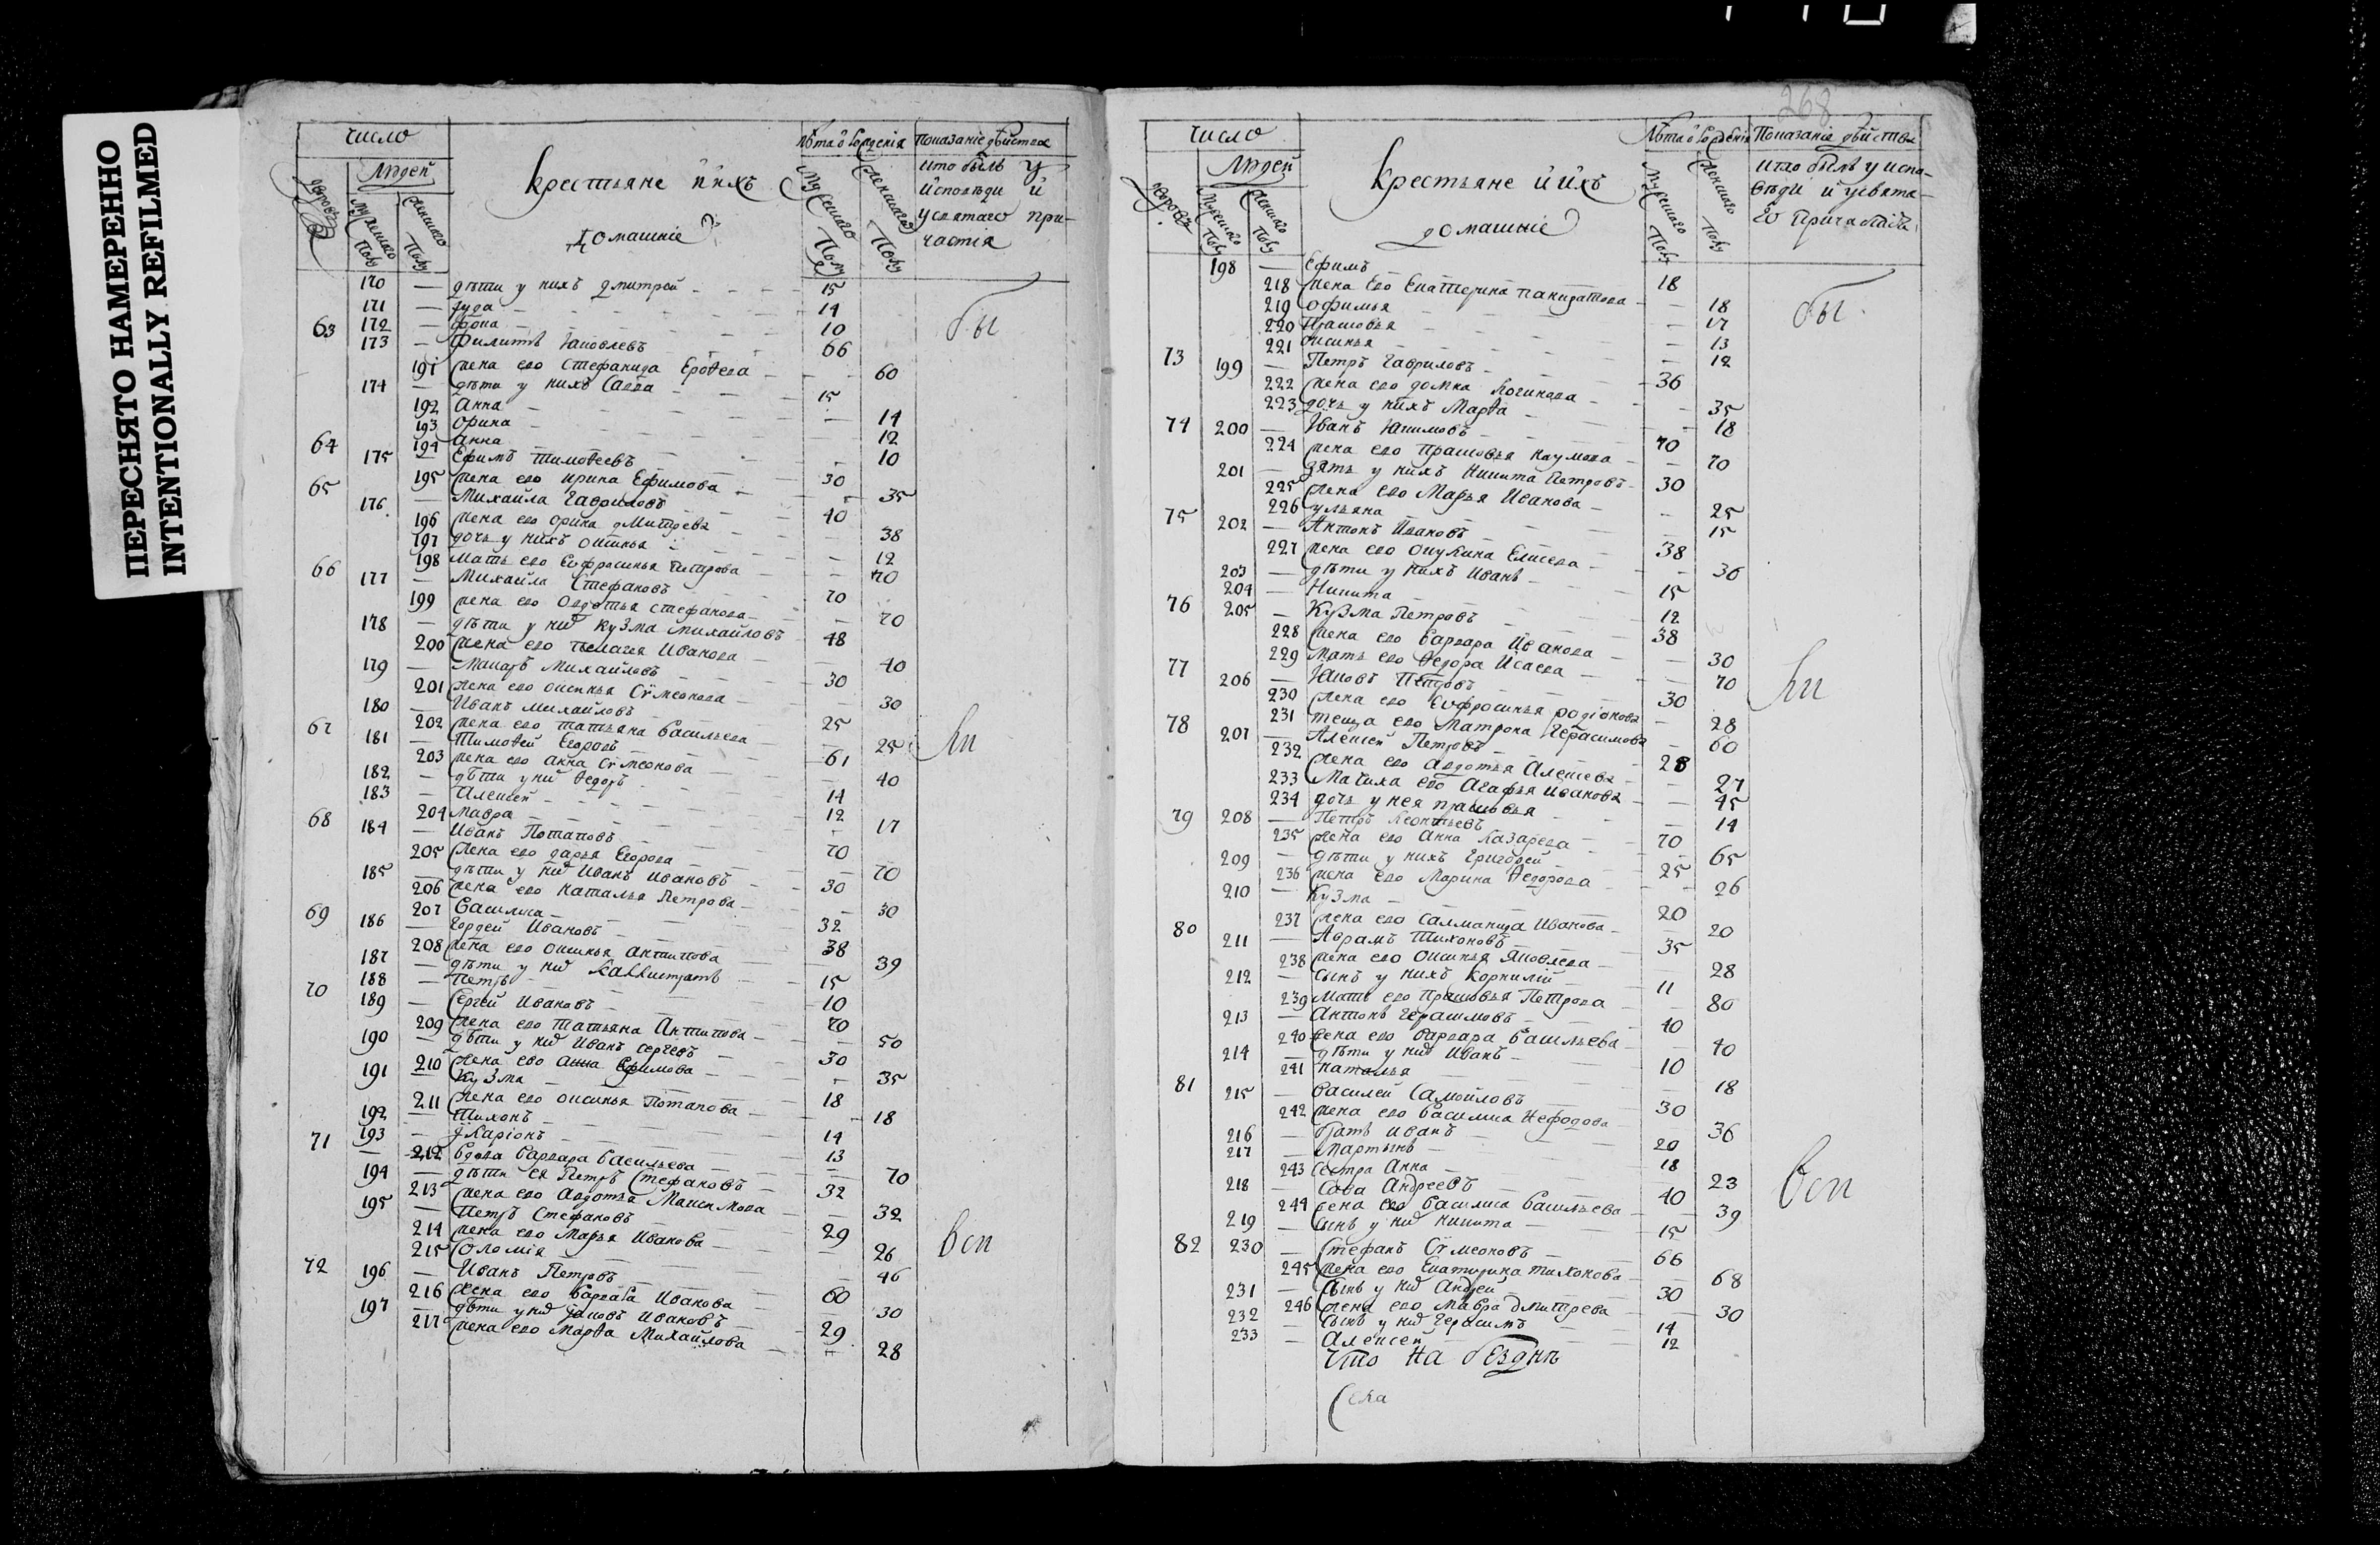 ПЕРЕСНЯТО НАМЕРЕННО
INTENTIONALLY REFILMED
268
число
Людей
дворовъ
мужеска полу
женска полу
Крестьяне и ихъ
домашніе
лѣта о рожденія
Показаніе дѣйства
кто былъ у
исповѣди и
у святаго при-
частія
170 — дѣти у нихъ Дмитрей — 15
бы
171 — Іуда — 14
63 172 — Фока — 10
173 — Филипъ Яковлевъ 66
191 жена ево Стефанида Ерофеева — 60
174 — дѣти у нихъ Савва — 15
192 Анна — 14
193 Орина — 12
64 194 Анна — 10
175 — Ефимъ Тимофеевъ — 30
65 195 жена ево Ирина Ефимова — 35
176 — Михаила Гавриловъ — 40
196 жена ево Орина Дмитрева — 38
197 дочь у нихъ Оксинья — 12
198 мать ево Евфросинья Петрова — 70
66 177 — Михаила Стефановъ — 70
199 жена ево Овдотья Стефанова — 70
178 — дѣти у них Кузма Михайловъ — 48
200 жена ево Пелагея Иванова — 40
179 — Макаръ Михайловъ — 30
201 жена ево Оксинья Сѵмеонова — 30
180 — Иванъ Михайловъ — 25
67 202 жена ево Татьяна Васильева — 25
ли
181 — Тимофей Егоровъ — 61
203 жена ево Анна Сѵмеонова — 40
182 — дѣти у них Федоръ — 14
183 — Алексей — 12
204 Мавра — 17
68 184 — Иванъ Потаповъ — 70
205 жена ево Дарья Егорова — 70
185 — дѣти у них Иванъ Ивановъ — 30
206 жена ево Наталья Петрова — 30
207 Василиса — 32
69 186 — Гордей Ивановъ — 38
208 жена ево Оксинья Антипова — 39
187 — дѣти у них Каллистратъ — 15
188 — Петръ — 10
70 189 — Сергей Ивановъ — 70
209 жена ево Татьяна Антипова — 50
190 — дѣти у них Иванъ Сергеевъ — 30
210 жена ево Анна Ефимова — 35
191 — Кузма — 18
211 жена ево Оксинья Потапова — 18
192 — Тихонъ — 14
71 193 — Іларіонъ — 13
— 212 вдова Варвара Васильева — 70
194 — дѣти ея Петръ Стефановъ — 32
213 жена ево Авдотья Максимова — 32
195 — Петръ Стефановъ — 29
214 жена ево Марья Иванова — 26
вси
215 Соломія — 46
72 196 — Иванъ Петровъ — 60
216 жена ево Варвара Иванова — 30
197 — дѣти у них Іаковъ Ивановъ — 29
217 жена ево Марфа Михайлова — 28
число
Людей
дворовъ
мужеска полу
женска полу
Крестьяне и ихъ
домашніе
Лѣта о рожденія
Показаніе дѣйства
кто былъ у испо-
вѣди и у свята-
го причастія
198 — Ефимъ 18
218 жена ево Екатерина Панкратова — 18
бы
219 Офимья — 17
220 Прасковья — 13
221 Оксинья — 12
73 199 — Петръ Гавриловъ — 36
222 жена ево Домна Логинова — 35
223 дочь у нихъ Марфа — 18
74 200 — Иванъ Якимовъ — 70
224 жена ево Прасковья Наумова — 70
201 — зять у нихъ Никита Петровъ — 30
225 жена ево Марья Иванова — 25
226 Ульяна — 15
75 202 — Антонъ Ивановъ — 38
227 жена ево Елисева — 36
203 — дѣти у нихъ Иванъ — 15
204 — Никита — 12
76 205 — Кузма Петровъ — 38
228 жена ево Варвара Иванова — 30
229 мать ево Федора Исаева — 70
77 206 — Яковъ Петровъ — 30
ли
230 жена ево Евфросинья Родіонова — 28
231 теща ево Матрона Герасимова — 60
78 207 — Алексей Петровъ — 28
232 жена ево Авдотья Алексева — 27
233 мачиха ево Агафья Иванова — 45
234 дочь у нея Прасковья — 14
79 208 — Петръ Леонтьевъ — 70
235 жена ево Анна Лазарева — 65
209 — дѣти у нихъ Григорей — 25
236 жена ево Марина Федорова — 26
210 — Кузма — 20
237 жена ево Салманида Иванова — 20
80 211 — Аврамъ Тихоновъ — 35
238 жена ево Оксинья Яковлева — 28
212 — сынъ у нихъ Корнилій — 11
239 мать ево Прасковья Петрова — 80
213 — Антонъ Герасимовъ — 40
240 жена ево Варвара Васильева — 40
214 — дѣти у них Иванъ — 10
241 Наталья — 18
81 215 — Василей Самойловъ — 30
242 жена ево Василиса Нефодова — 36
216 — братъ Иванъ — 20
217 — Мартынъ — 18
243 сестра Анна — 23
218 — Сава Андреевъ — 40
вси
244 жена ево Василиса Васильева — 39
219 — сынъ у них Никита — 15
82 230 — Стефанъ Сѵмеоновъ — 66
245 жена ево Екатерина Тихонова — 68
231 — сынъ у них Андрей — 30
246 жена ево Мавра Дмитрева — 30
232 — сынъ у них Герасимъ — 14
233 — Алексей — 12
Что на безднѣ
Села